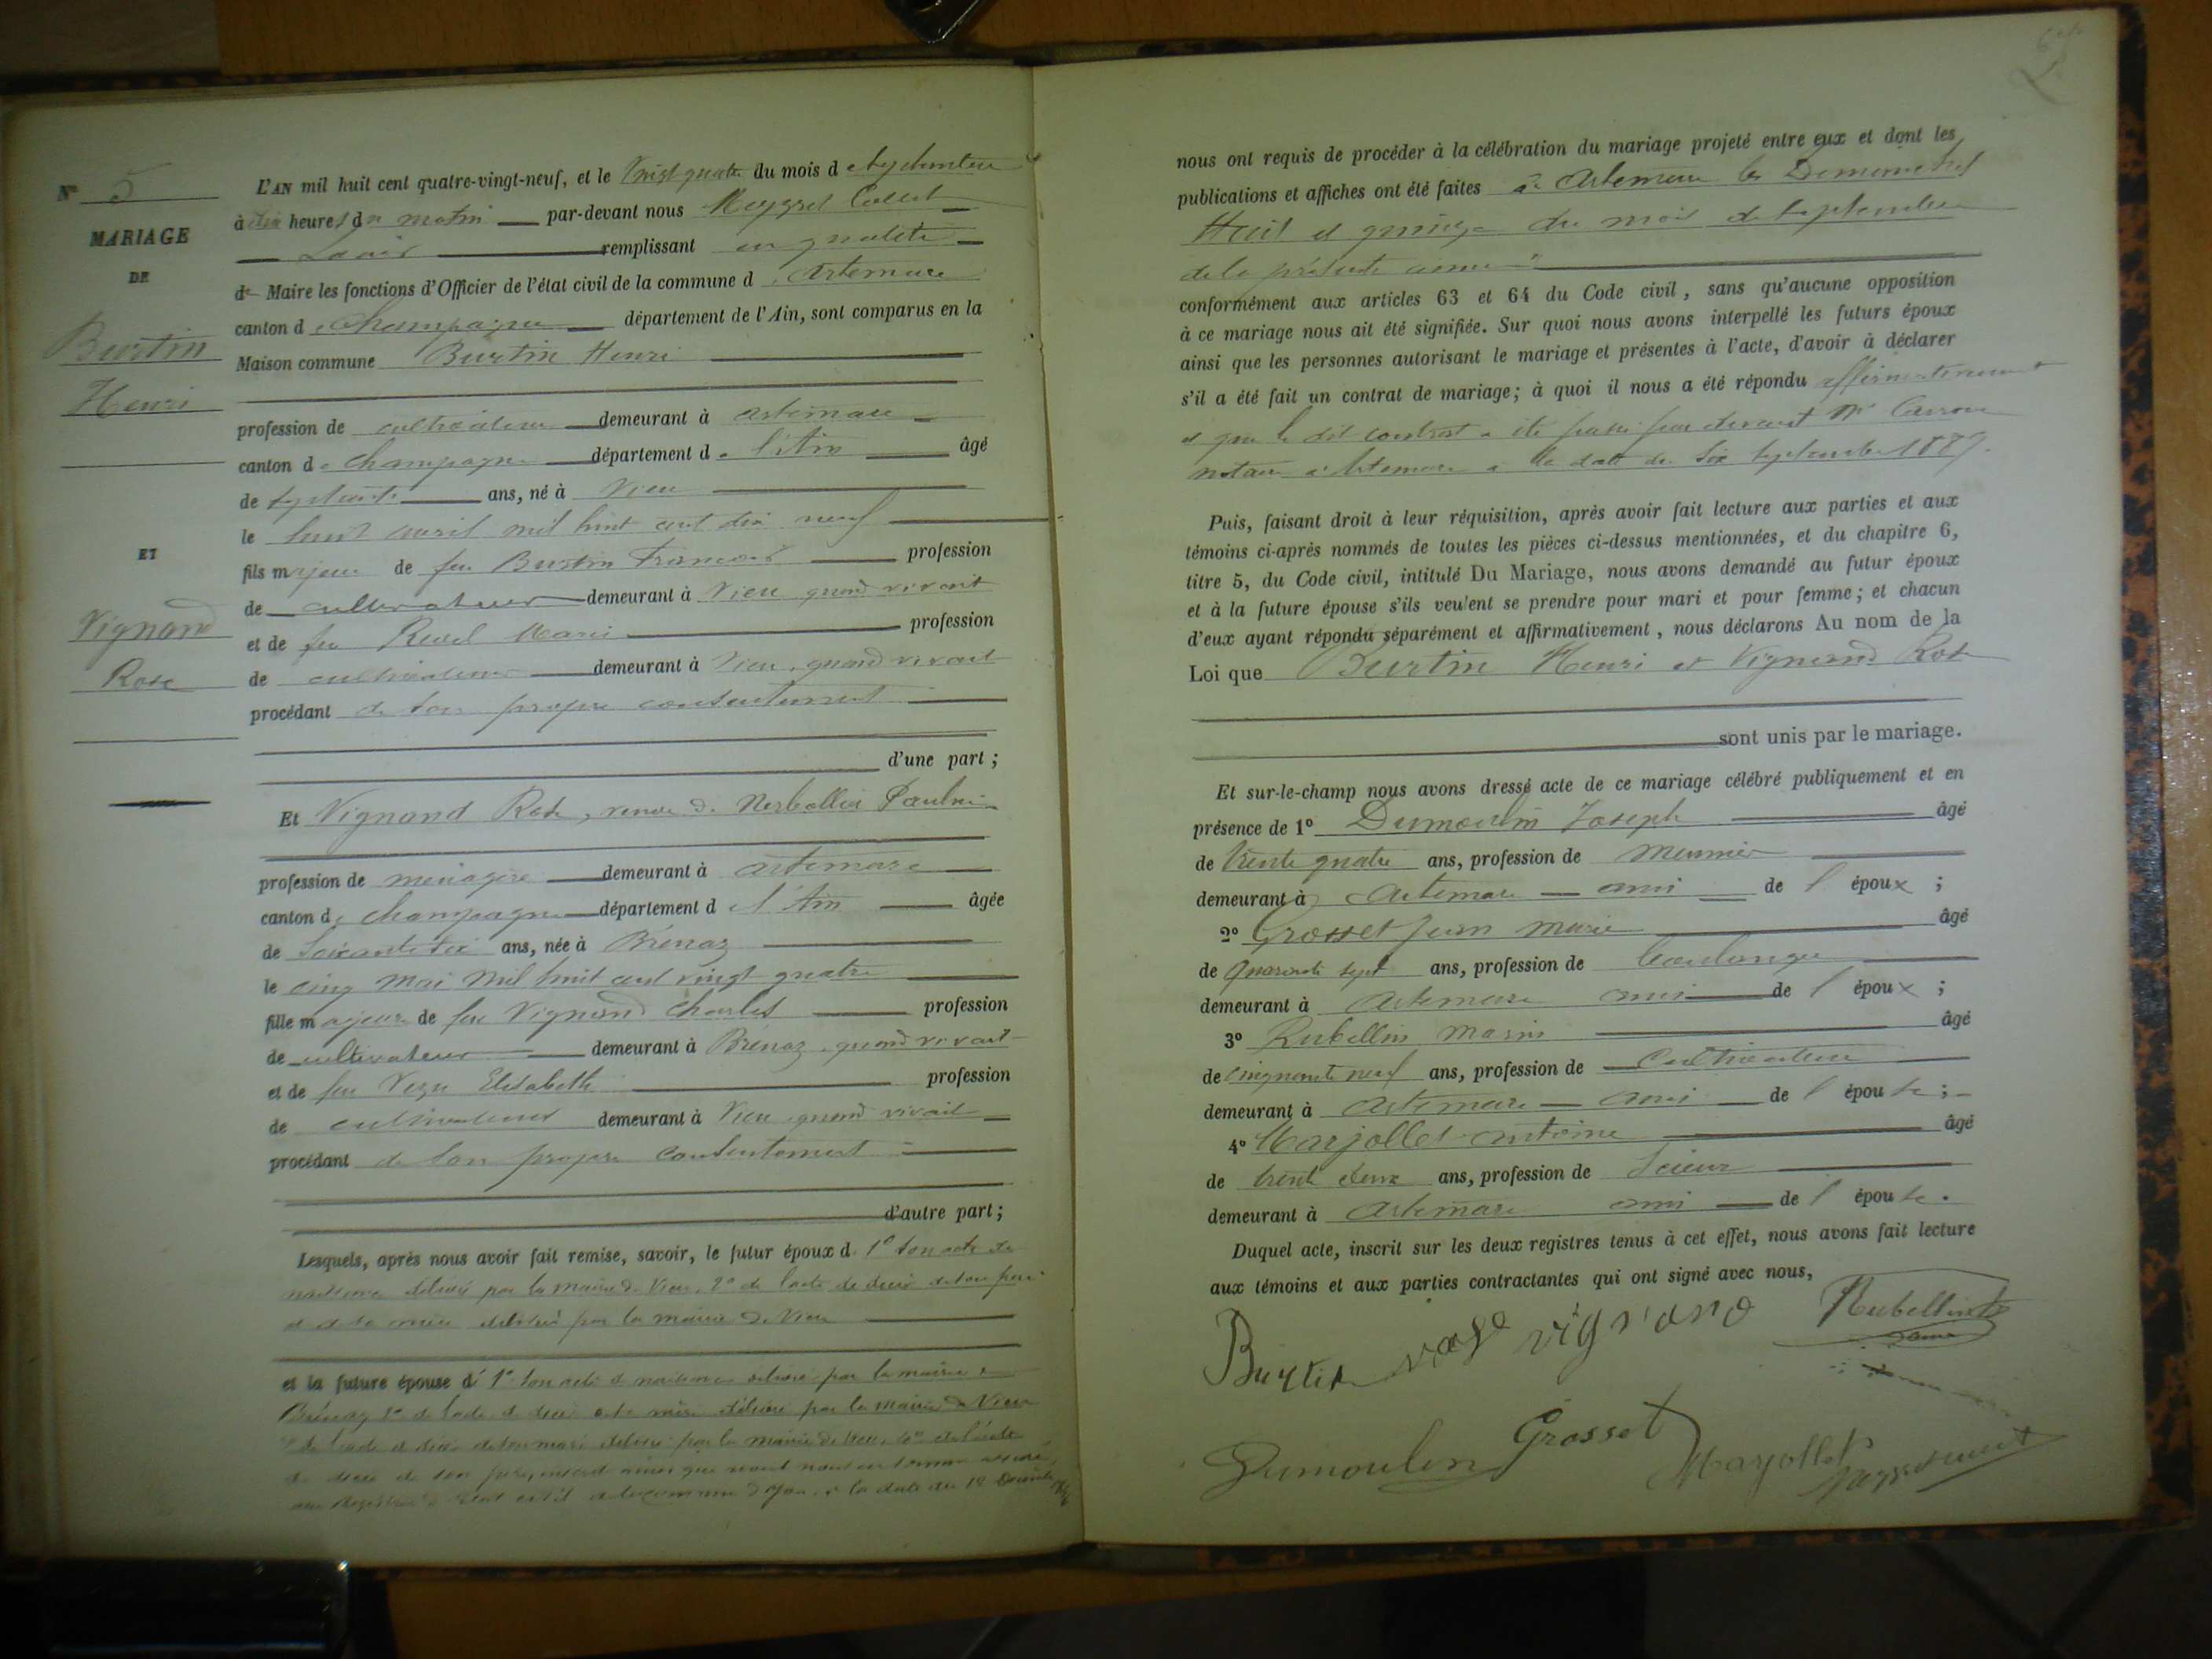 N° 5
MARIAGE
DE
Burtin
Henri
ET
Vignand
Rose
L'AN mil huit cent quatre-vingt-neuf, et le Vingt quatre du mois de Septembre
à dix heures du matin par-devant nous Meyssel
Louis remplissant en qualité
de Maire les fonctions d'Officier de l'état civil de la commune d'Artemare
canton de Champagne département de l'Ain, sont comparus en la
Maison commune Burtin Henri
profession de cultivateur demeurant à artemare
canton de Champagne département de l'Ain âgé
de septante ans, né à Vieu
le huit avril mil huit cent dix neuf
fils majeur de feu Burtin François profession
de cultivateur demeurant à Vieu quand vivait
et de feu Revel Marie profession
de cultivateur demeurant à Vieu, quand vivait
procédant de son propre consentement
d'une part ;
Et Vignand Rose, veuve de Paulin
profession de ménagère demeurant à artemare
canton de Champagne département de l'Ain âgée
de soixante six ans, née à Brénaz
le cinq mai mil huit cent vingt quatre
fille majeure de feu Vignand Charles profession
de cultivateur demeurant à Brénaz, quand vivait
et de feu Elisabeth profession
de cultivateur demeurant à Vieu quand vivait
procédant de son propre consentement
d'autre part ;
Lesquels, après nous avoir fait remise, savoir, le futur époux d. 1° son acte de
naissance délivré par la mairie de Vieu, 2° de l'acte de décès de son père
et de sa mère délivré par la mairie de Vieu
et la future épouse d. 1° son acte de naissance délivré par la mairie de
Brénaz 2° de l'acte de décès de sa mère délivré par la mairie de Vieu
de l'acte de décès de son mari délivré par la mairie de Vieu, 4° de l'acte
de décès de son père, ainsi que nous nous en sommes assuré
aux registres de l'état civil de la commune à la date du 12
nous ont requis de procéder à la célébration du mariage projeté entre eux et dont les
publications et affiches ont été faites à Artemare les Dimanches
Huit et quinze du mois de Septembre
de la présente année
conformément aux articles 63 et 64 du Code civil, sans qu'aucune opposition
à ce mariage nous ait été signifiée. Sur quoi nous avons interpellé les futurs époux
ainsi que les personnes autorisant le mariage et présentes à l'acte, d'avoir à déclarer
s'il a été fait un contrat de mariage ; à quoi il nous a été répondu affirmativement
et que le dit contrat a été passé par devant Me
notaire à Artemare à la date du six Septembre 1889.
Puis, faisant droit à leur réquisition, après avoir fait lecture aux parties et aux
témoins ci-après nommés de toutes les pièces ci-dessus mentionnées, et du chapitre 6,
titre 5, du Code civil, intitulé Du Mariage, nous avons demandé au futur époux
et à la future épouse s'ils veulent se prendre pour mari et pour femme ; et chacun
d'eux ayant répondu séparément et affirmativement, nous déclarons Au nom de la
Loi que Burtin Henri et Vignand Rose
sont unis par le mariage.
Et sur-le-champ nous avons dressé acte de ce mariage célébré publiquement et en
présence de 1° Dumoulin Joseph âgé
de trente quatre ans, profession de meunier
demeurant à Artemare ami de l'époux ;
2° Grosset Jean Marie âgé
de quarante sept ans, profession de boulanger
demeurant à Artemare ami de l'époux ;
3° Rubellin Marin âgé
de cinquante neuf ans, profession de Cultivateur
demeurant à Artemare ami de l'épouse ;
4° Marjollet antoine âgé
de trente deux ans, profession de Scieur
demeurant à Artemare ami de l'épouse.
Duquel acte, inscrit sur les deux registres tenus à cet effet, nous avons fait lecture
aux témoins et aux parties contractantes qui ont signé avec nous,
Burtin vignand Rubellin
Dumoulin Grosset Marjollet